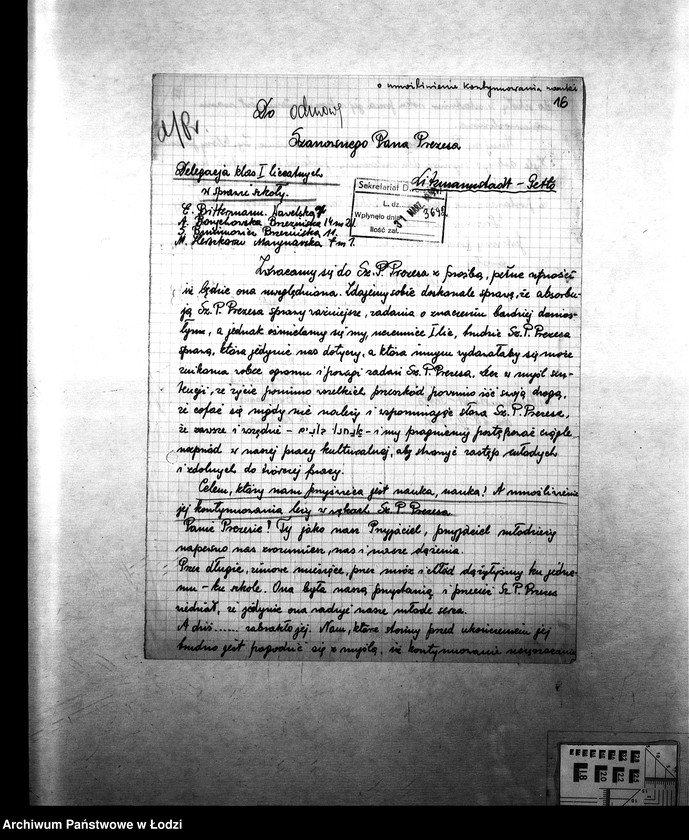 o umożliwienie kontynuowania nauki
16
Do odmowy
Szanownego Pana Prezesa
Delegacja klas I licealnych
w sprawie szkoły.
Litzmannstadt – Getto
Sekretariat D
L. dz. 3648
Wpłynęło dnia
Ilość zał.
E. Bittermann. Hawelska
A. Boruchowska Brzezińska 14 m 21.
S. Brzezińska 11.
M. Herszkorn Marynarska 7 m 1.
Zwracamy się do Sz. P. Prezesa z prośbą, pełne ufności
iż będzie ona uwzględniona. Zdajemy sobie doskonale sprawę, że absorbu-
ją Sz. P. Prezesa sprawy ważniejsze, zadania o znaczeniu bardziej donios-
łym, a jednak ośmielamy się my, uczennice I lic, trudzić Sz. P. Prezesa
sprawą, która jedynie nas dotyczy, a która innym wydawałaby się może
znikoma wobec ogromu i powagi zadań Sz. P. Prezesa. Lecz w myśl sen-
tencji, że życie pomimo wszelkich przeszkód powinno iść swoją drogą,
że cofać się nigdy nie należy i wspominając słowa Sz. P. Prezesa,
że zawsze i wszędzie – – i my pragniemy postępować ciągle
naprzód w naszej pracy kulturalnej, aby stworzyć zastęp młodych
i zdolnych do twórczej pracy.
Celem, który nam przyświeca jest nauka, nauka! A umożliwienie
jej kontynuowania leży w rękach Sz. P. Prezesa.
Panie Prezesie! Ty jako nasz Przyjaciel, przyjaciel młodzieży
napewno nas zrozumiesz, nas i nasze dążenia.
Przez długie, zimowe miesiące, przez mróz i chłód dążyłyśmy ku jedne-
mu – ku szkole. Ona była naszą przystanią i przecież Sz. P. Prezes
wiedział, że jedynie ona raduje nasze młode serca.
A dziś...... zabrakło jej. Nam, które stoimy przed ukończeniem jej
trudno jest pogodzić się z myślą, iż kontynuowanie
Archiwum Państwowe w Łodzi